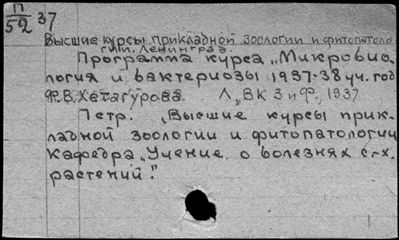 П
52 37
Высшие курсы прикладной зоологии и фитопатоло
гии. Ленинград.
Программа курса „Микробио-
логия и бактериозы 1937-38 уч. год
Ф.В. Хетагурова. Л., ВКЗиФ, 1937
Петр. „Высшие курсы прик-
ладной зоологии и фитопатологии
Кафедра „Учение о болезнях с-х.
растений".